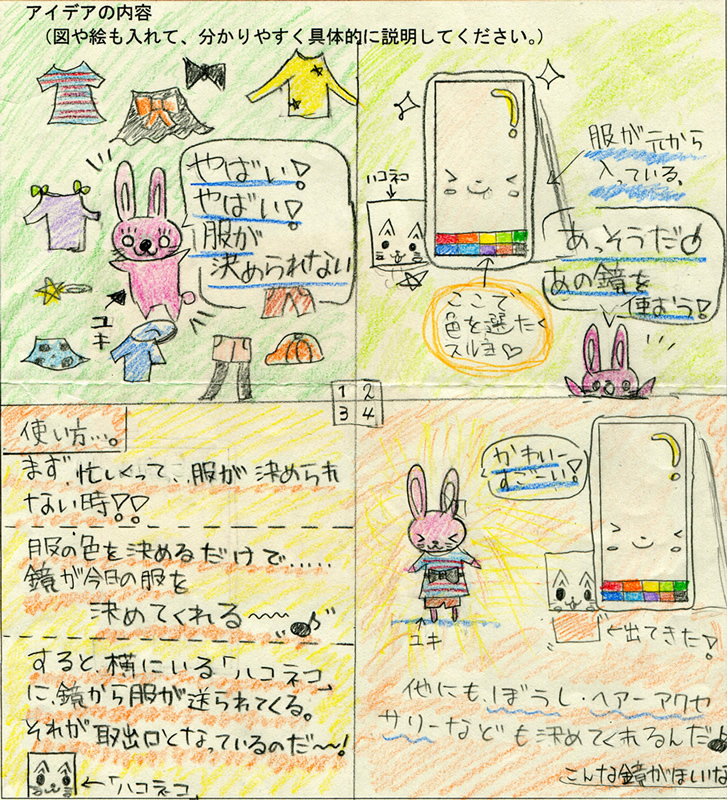 アイデアの内容
（図や絵も入れて、分かりやすく具体的に説明してください。）
やばい!
やばい!
服が
決められない
ユキ
服が元から
入っている。
ハコネコ
あっそうだ♪
あの鏡を
使おう!
ここで
色を選たく
スルヨ♡
1 2
3 4
使い方…。
まず、忙しくって、服が決められ
ない時!!
服の色を決めるだけで.....
鏡が今日の服を
決めてくれる〜〜〜♪
すると、横にいる「ハコネコ」
に、鏡から服が送られてくる。
それが取出口となっているのだ〜〜!
←「ハコネコ」
かわいー
すごーい!
ユキ
←出てきた!
他にも、ぼうし・ヘアーアクセ
サリーなども決めてくれるんだ♪
こんな鏡がほしいな